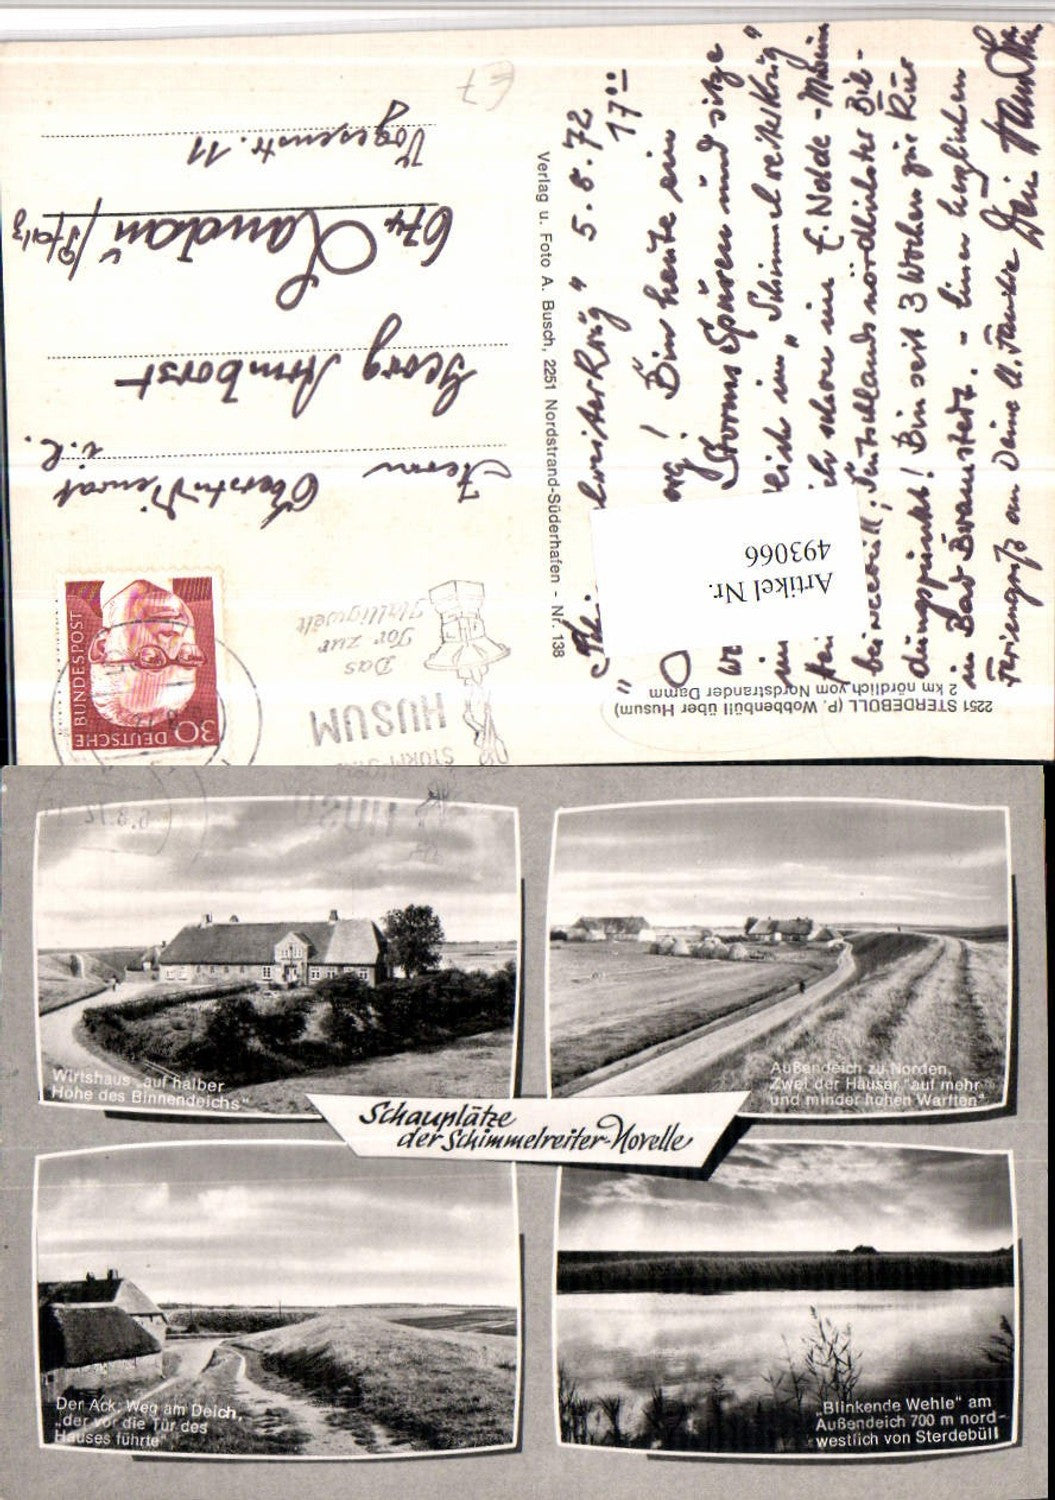 "Schimmelreiterkrüg" 5.8.72
17⁰⁰
! Bin heute ein
Storms Spüren und sitze
im „Schimmelreiterkrüg"
ich schon im E. Nolde-Museum
Deutschlands nördlichster Bil-
düngspünkt! Bin seit 3 Wochen zür Kür
in Bad Bramstedt. - Einen herzlichen
Feriengrüß an Deine lb. Familie Dein
Herrn
Oberstüdienrat
i.R.
Georg Armborst
674 Landaü/Pfalz
Vogesenstr. 11
E7
Verlag u. Foto A. Busch, 2251 Nordstrand-Süderhafen - Nr. 138
2251 STERDEBÜLL (P. Wobbenbüll über Husum)
2 km nördlich vom Nordstrander Damm
Artikel Nr.
493066
DEUTSCHE
BUNDESPOST
30
HUSUM
Das
Tor zur
Halligwelt
Wirtshaus „auf halber
Höhe des Binnendeichs"
Außendeich zu Norden.
Zwei der Häuser „auf mehr
und minder hohen Warften"
Schauplätze
der Schimmelreiter-Novelle
Der Ack: Weg am Deich,
„der vor die Tür des
Hauses führte"
„Blinkende Wehle" am
Außendeich 700 m nord-
westlich von Sterdebüll